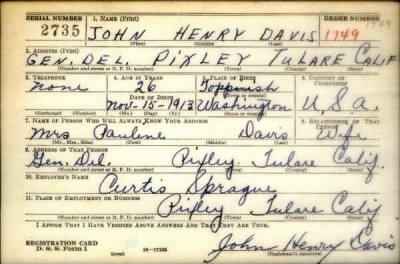 SERIAL NUMBER 1. NAME (Print) ORDER NUMBER
2735 JOHN HENRY DAVIS 1749
(First) (Middle) (Last)
2. ADDRESS (Print)
GEN. DEL. PIXLEY TULARE CALIF
(Number and street or R. F. D. number) (Town) (County) (State)
3. TELEPHONE 4. AGE IN YEARS 5. PLACE OF BIRTH 6. COUNTRY OF CITIZENSHIP
none 26 Toppenish
DATE OF BIRTH
Nov-15-1913 Washington U.S.A.
7. NAME OF PERSON WHO WILL ALWAYS KNOW YOUR ADDRESS 8. RELATIONSHIP OF THAT PERSON
Mrs Pauline Davis Wife
(Mr., Mrs., Miss) (First) (Middle) (Last)
9. ADDRESS OF THAT PERSON
Gen. Del. Pixley Tulare Calif.
(Number and street or R. F. D. number) (Town) (County) (State)
10. EMPLOYER'S NAME
Curtis Sprague
11. PLACE OF EMPLOYMENT OR BUSINESS
Pixley Tulare Calif
(Number and street or R. F. D. number) (Town) (County) (State)
I AFFIRM THAT I HAVE VERIFIED ABOVE ANSWERS AND THAT THEY ARE TRUE.
REGISTRATION CARD
D. S. S. Form 1 (over) 16-17105 John Henry Davis
(Registrant's signature)